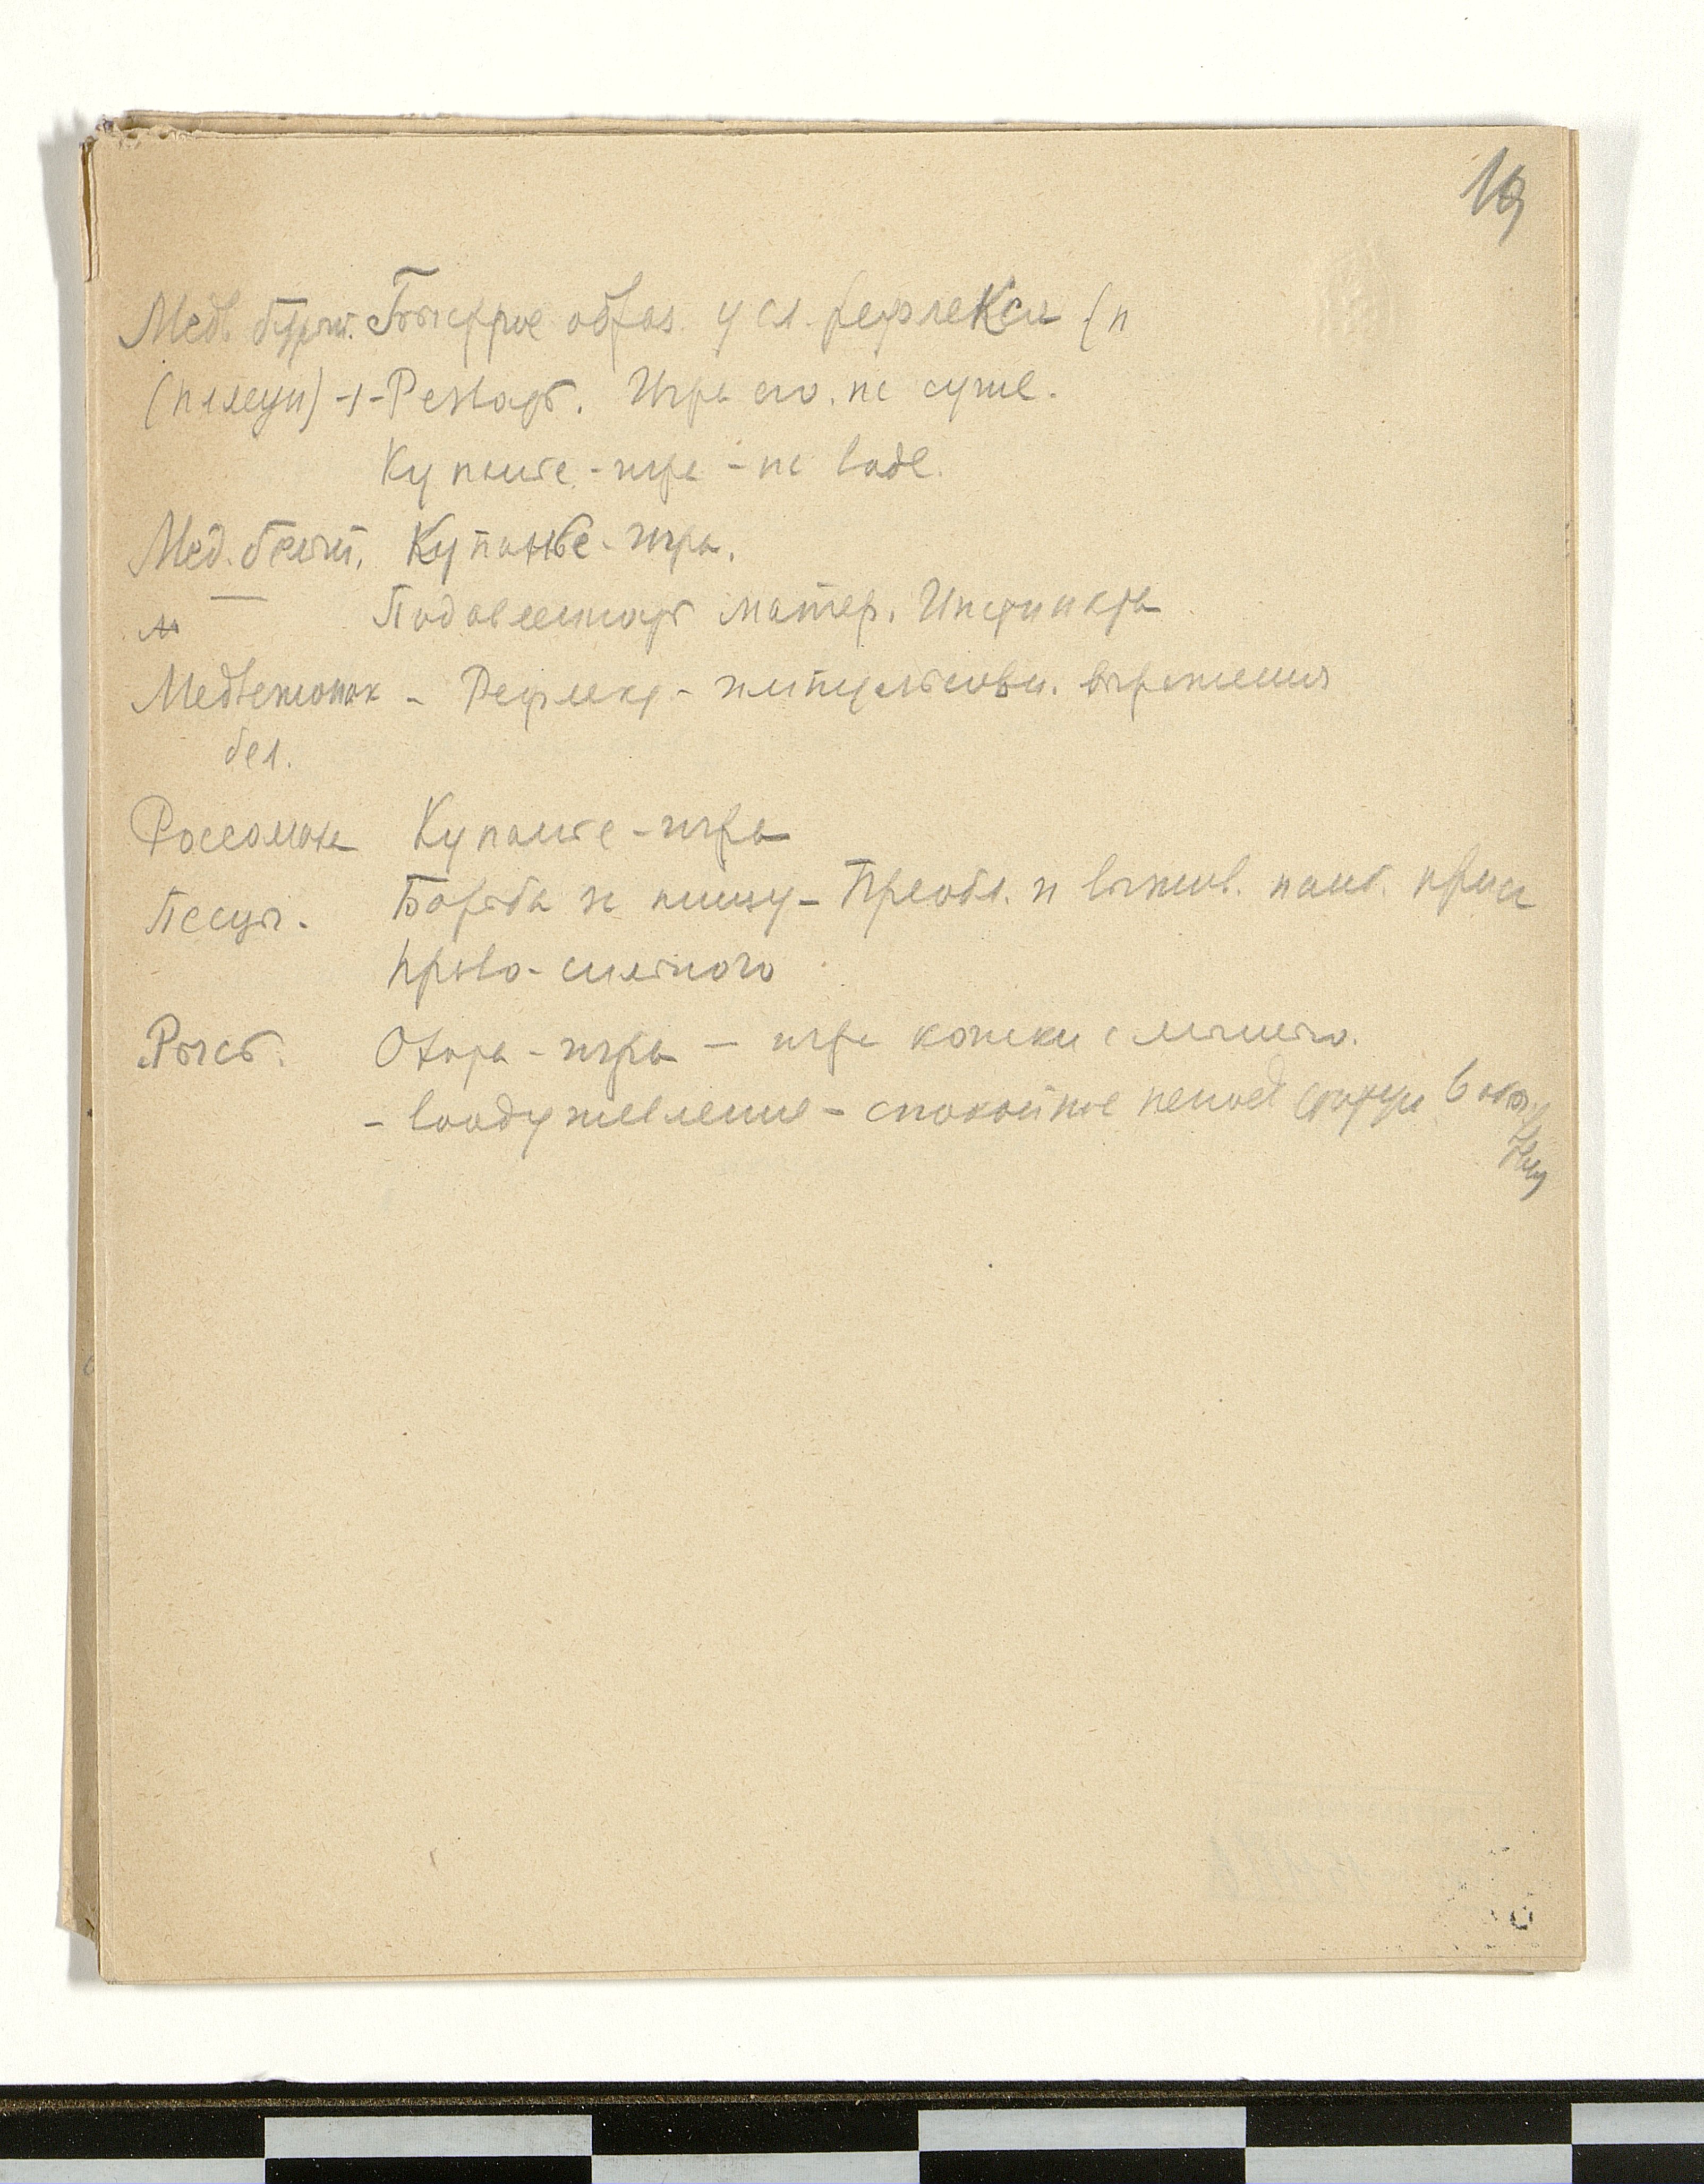 19
Мед. бурый. Быстрое образ. усл. рефлекси (п
(пляски) -1- Резвость. Игра его. на суше.
Купанье - игра - на воде.
Мед. белый. Купанье - игра.
м — Подавленность матер. Инстинкта
Медвежонок - Рефлект - импульсивн. выражения
бел.
Россомаха Купанье - игра
Песцы. Борьба за пищу - Преобл. и выжив. наиб.
право - сильного
Рысь. Охота - игра — игра кошки с мышью.
- воодушевление - спокойное